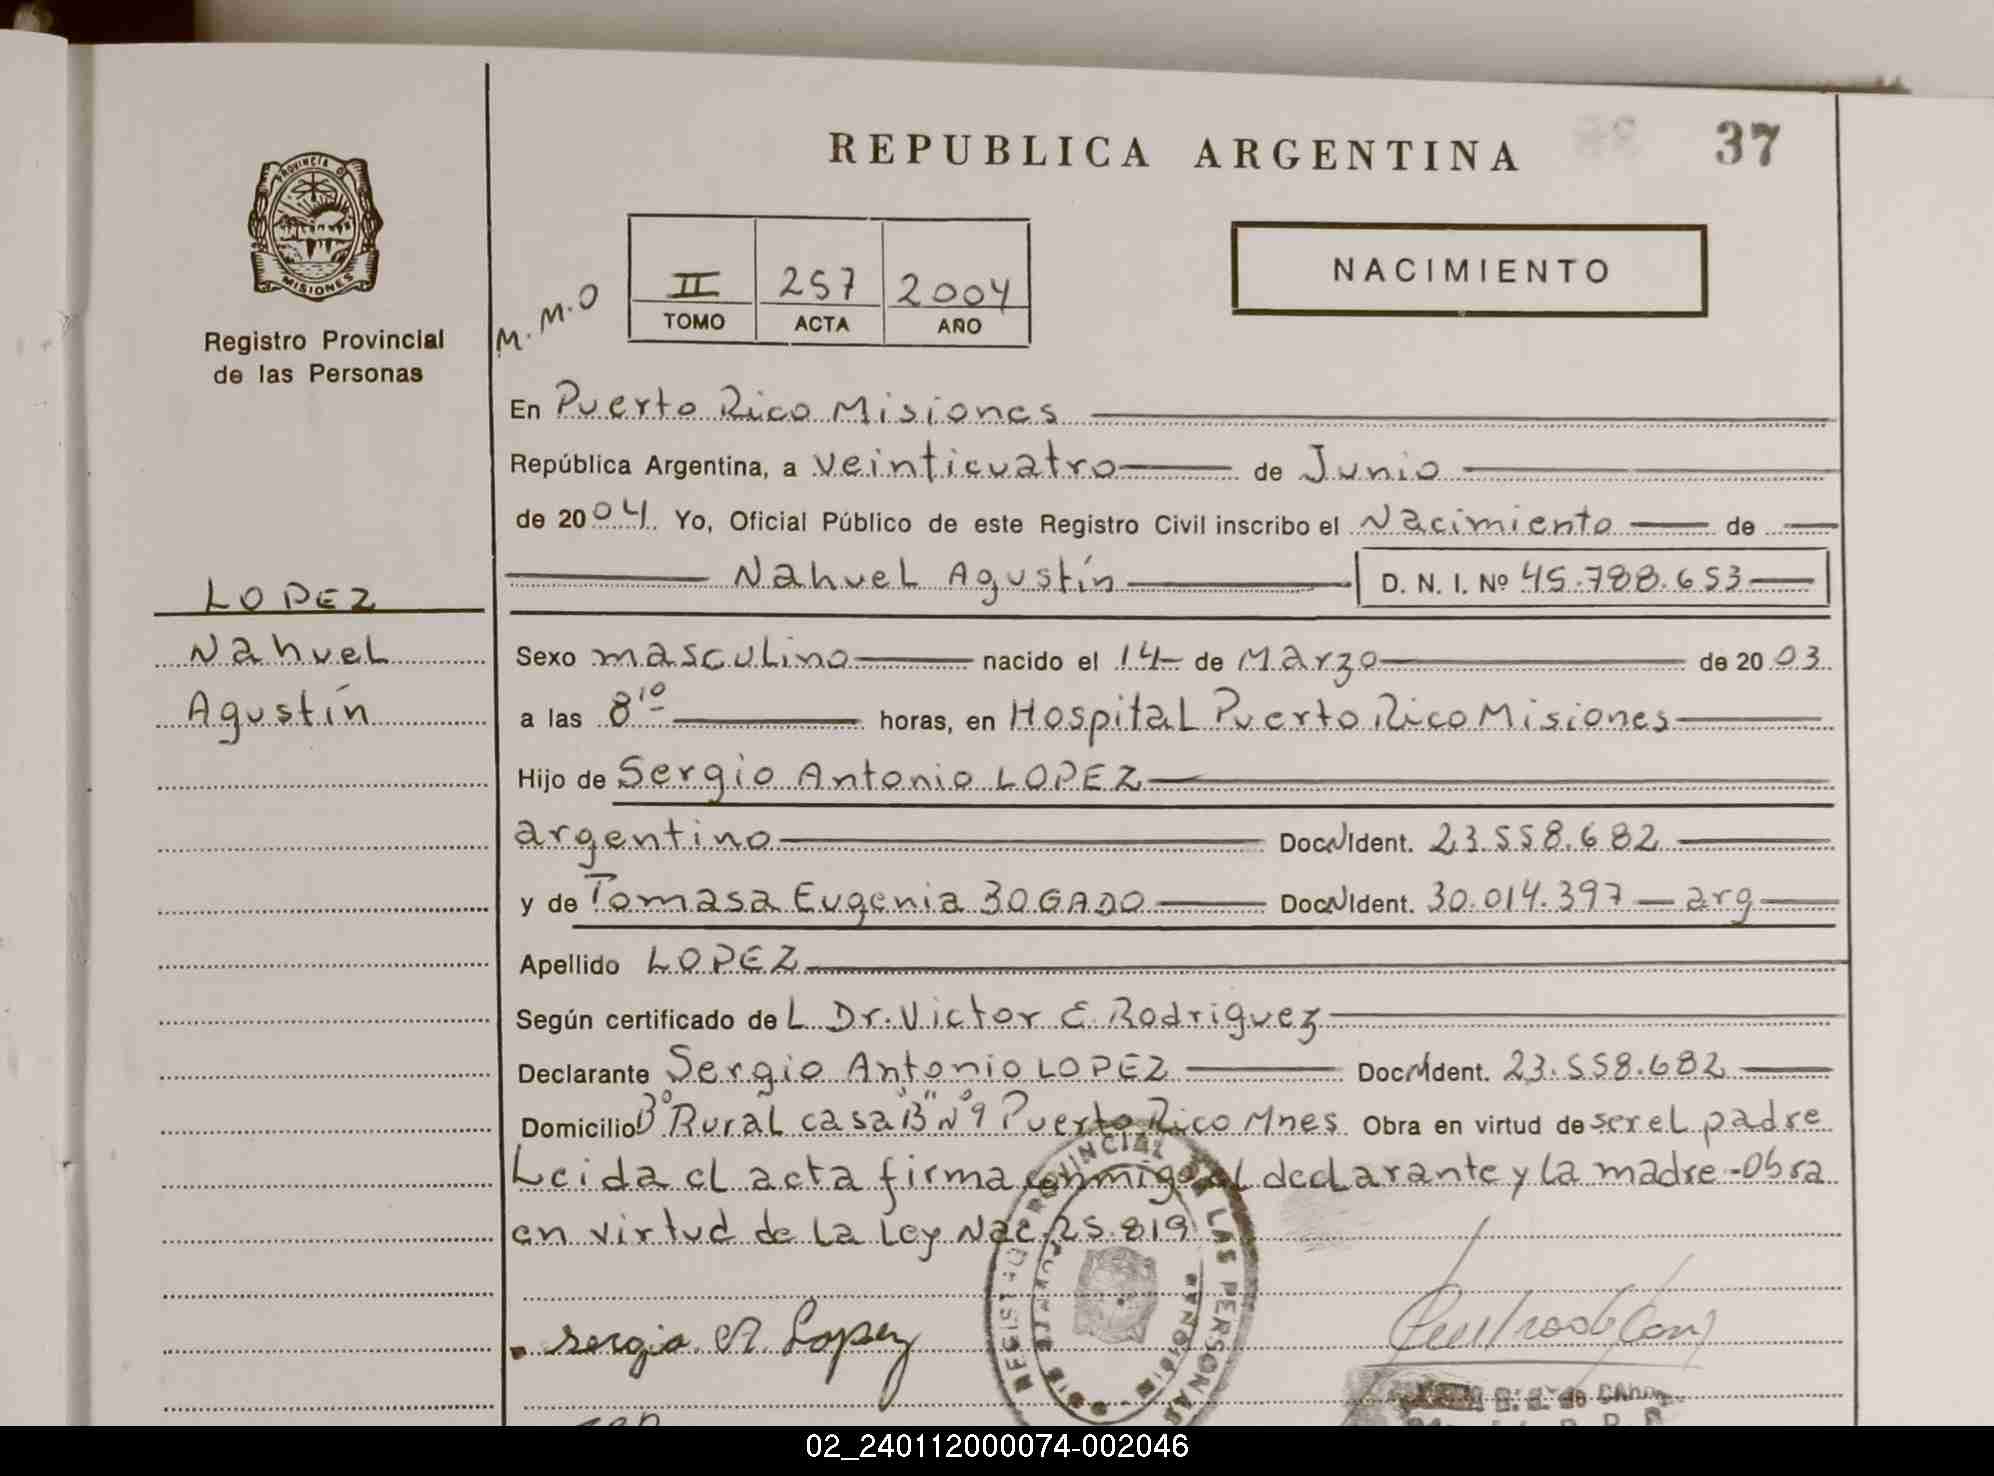 REPUBLICA ARGENTINA
37
PROVINCIA DE
MISIONES
Registro Provincial
de las Personas
M.M.O
II 257 2004
TOMO ACTA AÑO
NACIMIENTO
En Puerto Rico Misiones
República Argentina, a veinticuatro de Junio
de 2004. Yo, Oficial Público de este Registro Civil inscribo el Nacimiento de
Nahuel Agustín D. N. I. Nº 45.788.653
LOPEZ
Nahuel
Agustín
Sexo masculino nacido el 14 de Marzo de 2003
a las 8 10 horas, en Hospital Puerto Rico Misiones
Hijo de Sergio Antonio LOPEZ
argentino Doc N Ident. 23.558.682
y de Tomasa Eugenia BOGADO Doc N Ident. 30.014.397 arg
Apellido LOPEZ
Según certificado del Dr. Victor E. Rodriguez
Declarante Sergio Antonio LOPEZ Doc N Ident. 23.558.682
Domicilio Bº Rural casa "B" Nº 9 Puerto Rico Mnes Obra en virtud de ser el padre
Leida el acta firma conmigo el declarante y la madre - Obra
en virtud de la Ley Nac. 25.819
Sergio A. Lopez
REGISTRO PROVINCIAL DE LAS PERSONAS
MISIONES
02_240112000074-002046